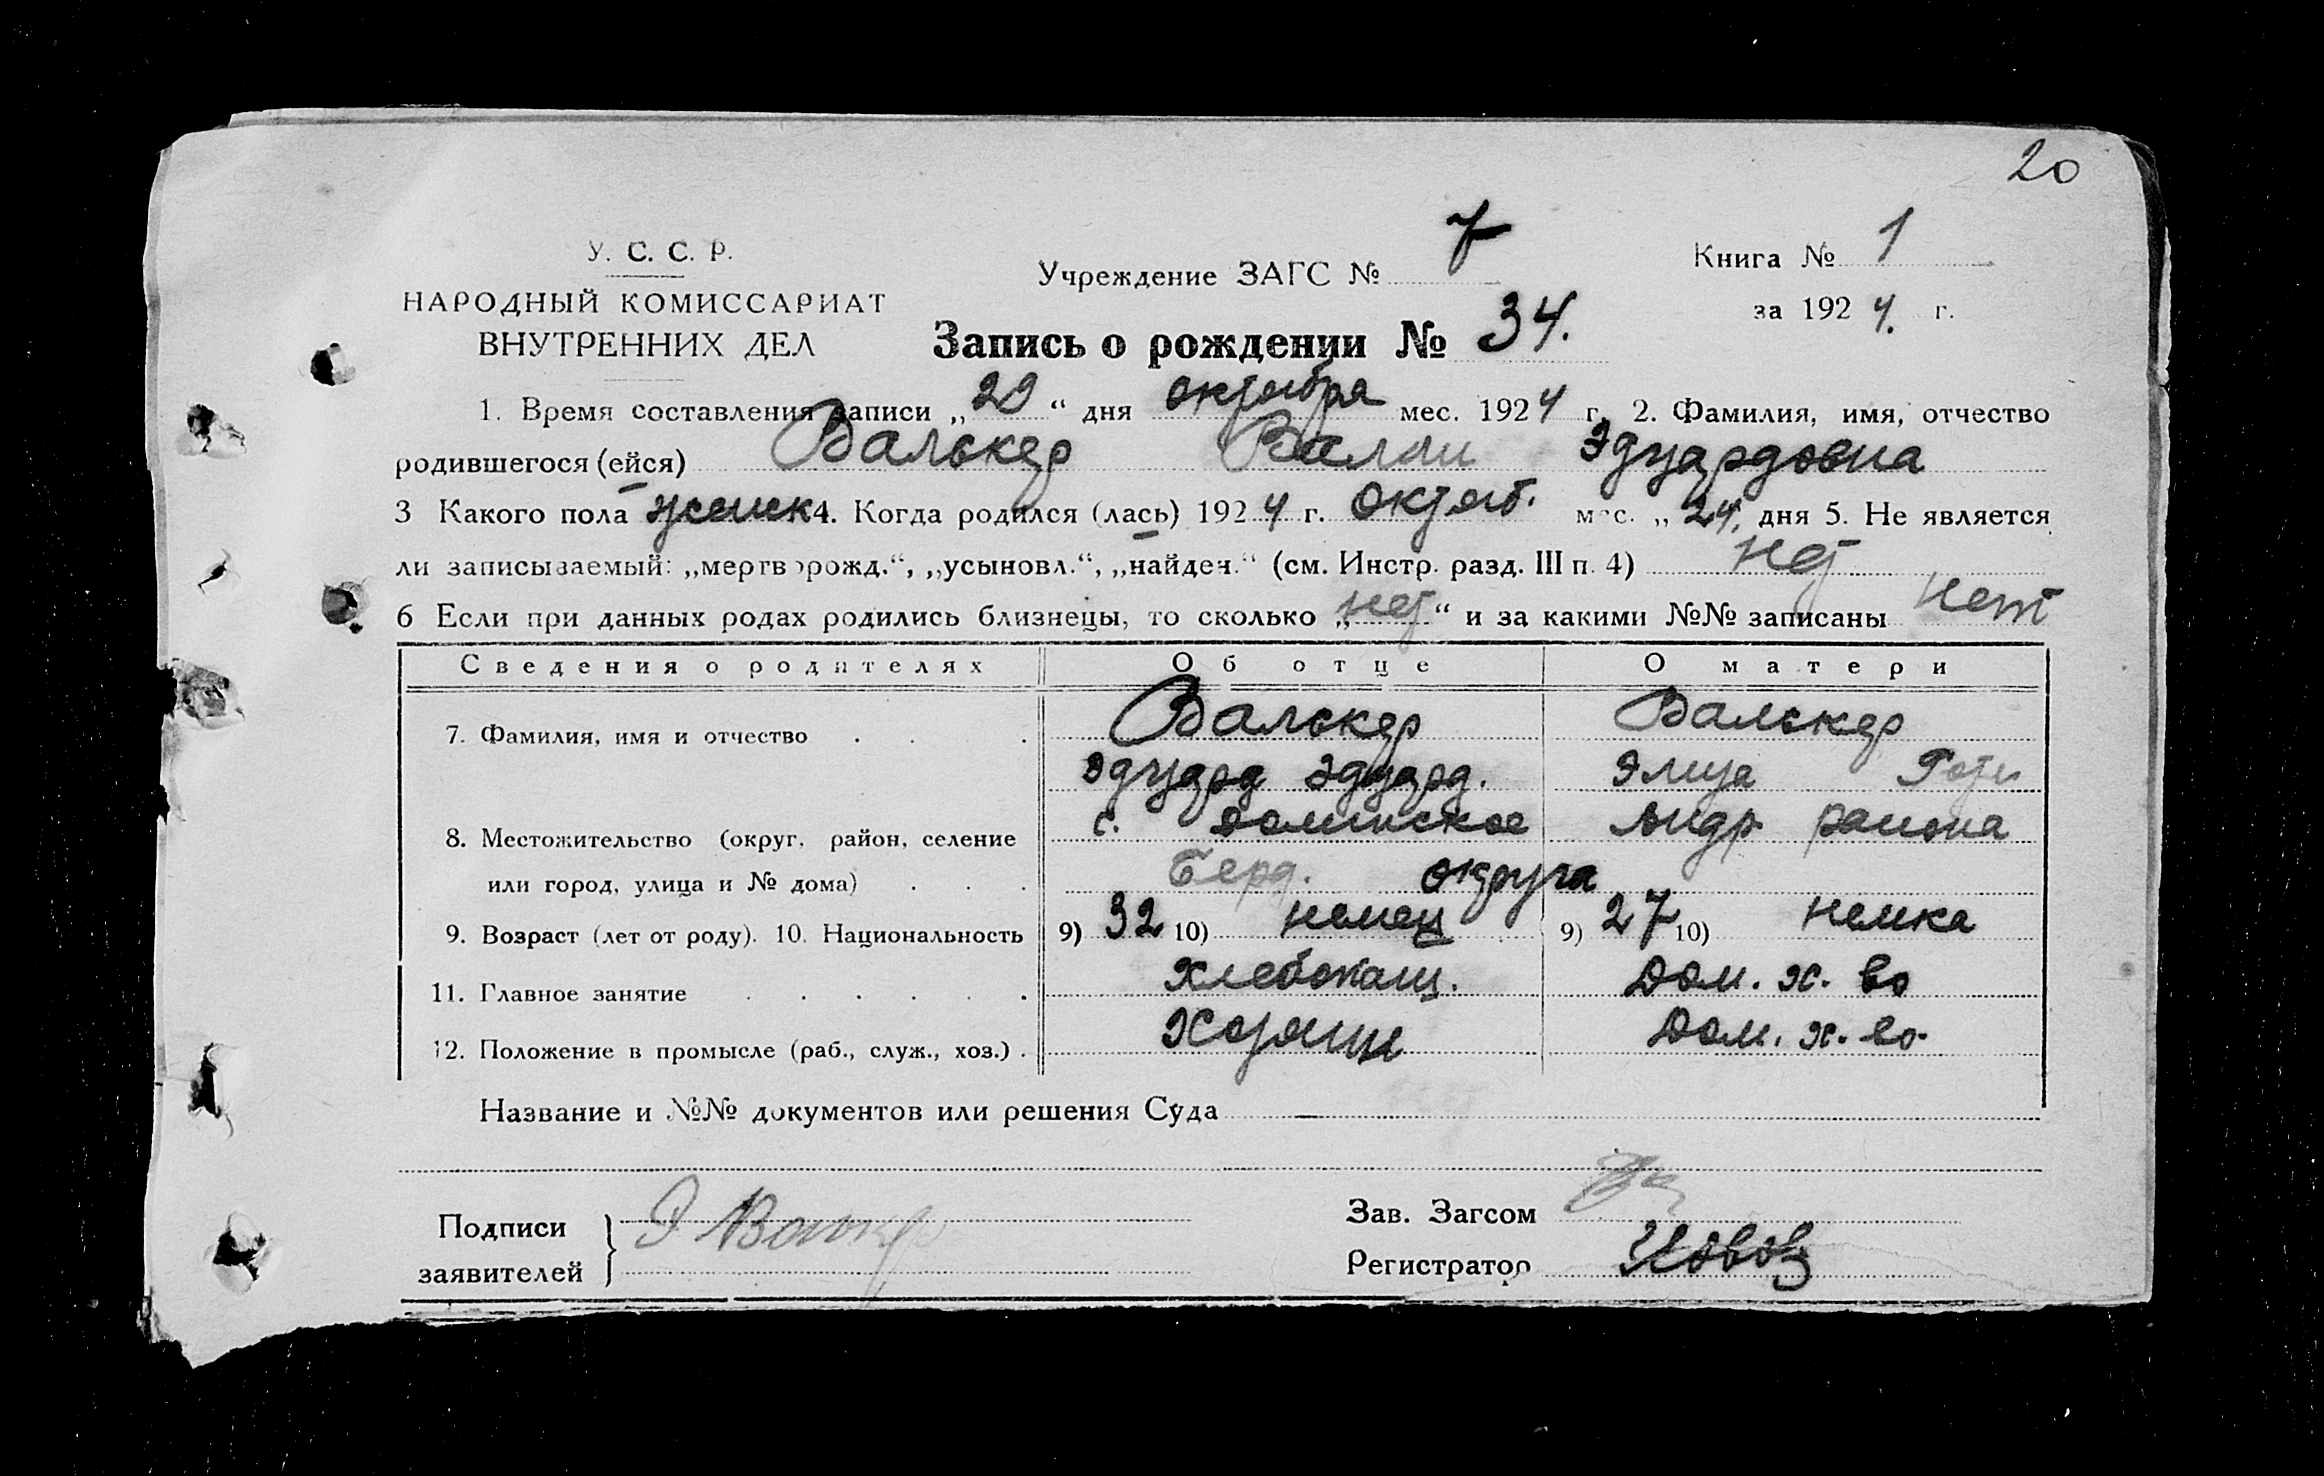 20
У. С. С. Р.
НАРОДНЫЙ КОМИССАРИАТ
ВНУТРЕННИХ ДЕЛ
Учреждение ЗАГС № 7
Книга № 1
за 1924. г.
Запись о рождении № 34.
1. Время составления записи „29“ дня октября мес. 1924 г. 2. Фамилия, имя, отчество
родившегося (ейся) Валькер Валли Эдуардовна
3 Какого пола женск 4. Когда родился (лась) 1924 г. октяб. мес. „24. дня 5. Не является
ли записываемый: „мертворожд.“, „усыновл.“, „найден.“ (см. Инстр. разд. III п. 4) нет
6 Если при данных родах родились близнецы, то сколько „нет“ и за какими №№ записаны нет
Сведения о родителях Об отце О матери
7. Фамилия, имя и отчество . . . Валькер Валькер
Эдуард Эдуард. Элиза
8. Местожительство (округ, район, селение с. Долинское Андр района
или город, улица и № дома) . . . Берд. округа
9. Возраст (лет от роду). 10. Национальность 9) 32 10) немец 9) 27 10) немка
11. Главное занятие . . . . . . Хлебопаш. Дом. х. во
12. Положение в промысле (раб., служ., хоз.) . Хозяин Дом. х. во.
Название и №№ документов или решения Суда —
Подписи
заявителей
Э Валькер
Зав. Загсом
Регистратор